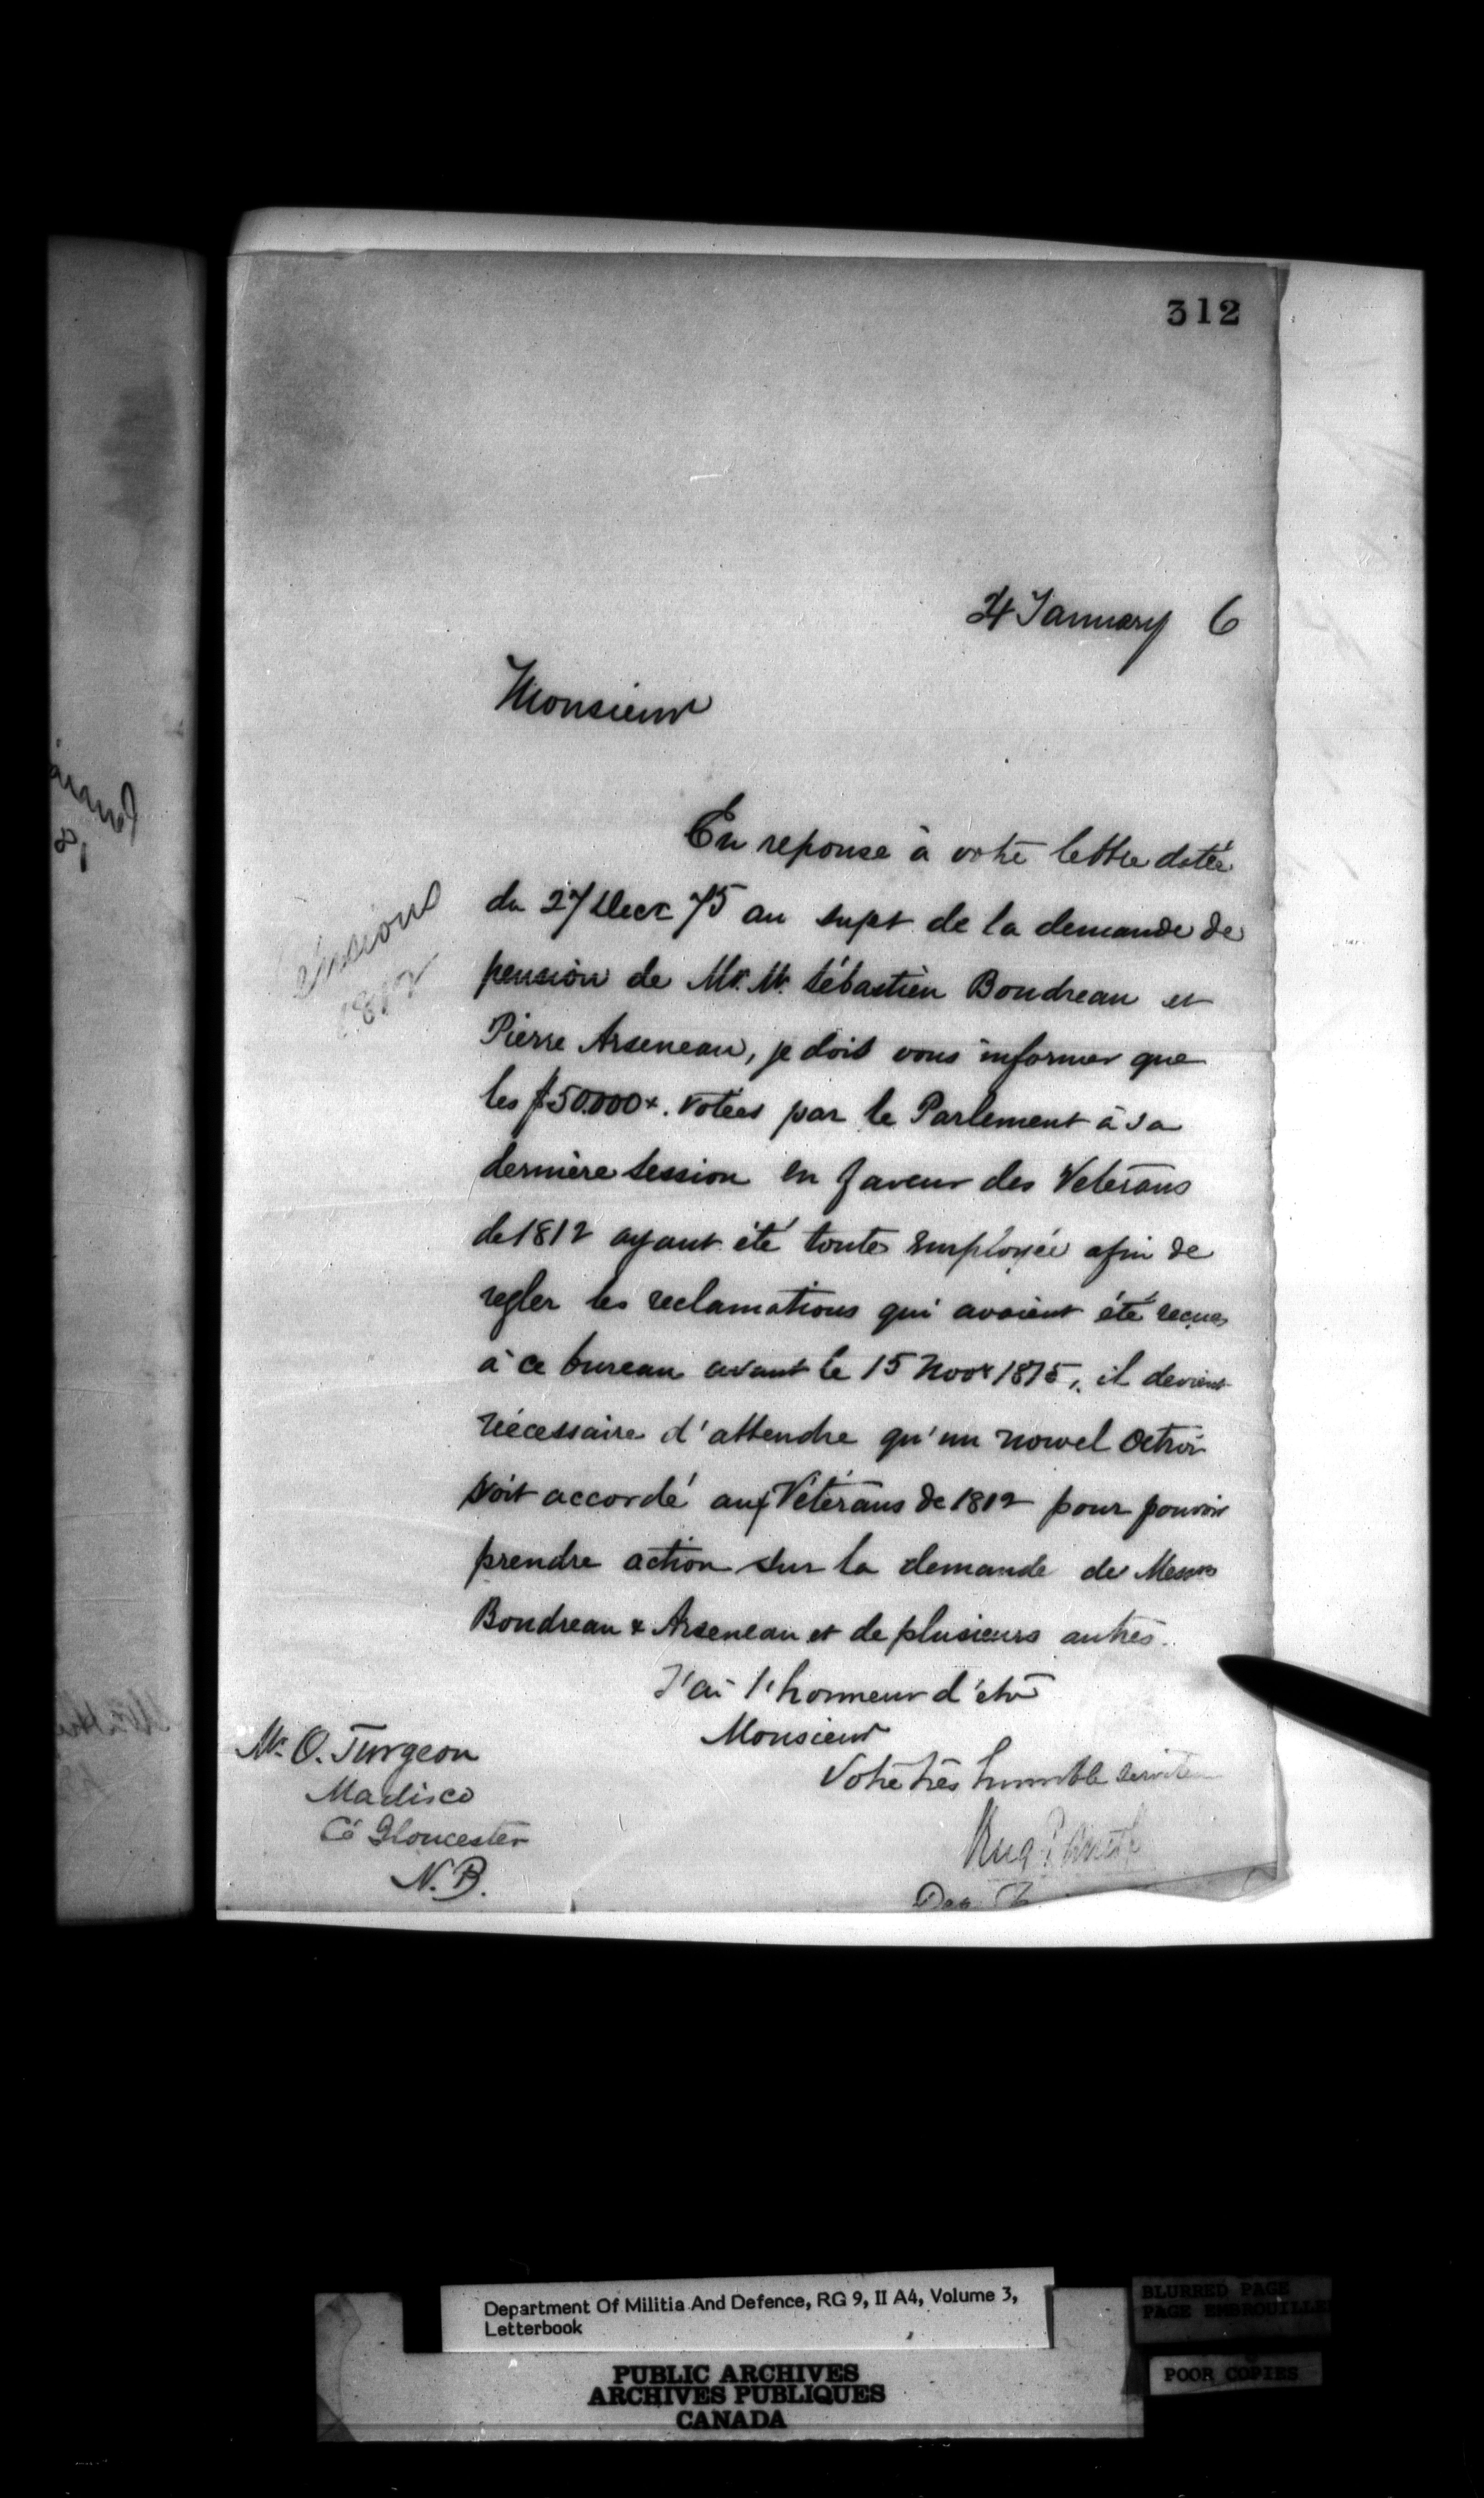 312
4 January 6
Monsieur
En reponse à votre lettre datée
du 27 Decr 75 au sujet de la demande de
pension de Mr. Mr. Sébastien Boudreau et
Pierre Arseneau, je dois vous informer que
les $50.000. votées par le Parlement à sa
dernière session en faveur des Veterans
de 1812 ayant été toute employée afin de
regler les reclamations qui avaient été recues
à ce bureau avant le 15 Novr 1875, il devient
nécessaire d'attendre qu'un nouvel Octroi
soit accordé aux Vétérans de 1812 pour pouvoir
prendre action sur la demande de Messrs
Boudreau & Arseneau et de plusieurs autres.
J'ai l'honneur d'etre
Monsieur
Votre très humble serviteur
Mr. O. Turgeon
Madisco
Co Gloucester
N.B.
Pensions
1812
Department Of Militia And Defence, RG 9, II A4, Volume 3,
Letterbook
PUBLIC ARCHIVES
ARCHIVES PUBLIQUES
CANADA
BLURRED PAGE
PAGE EMBROUILLE
POOR COPIES